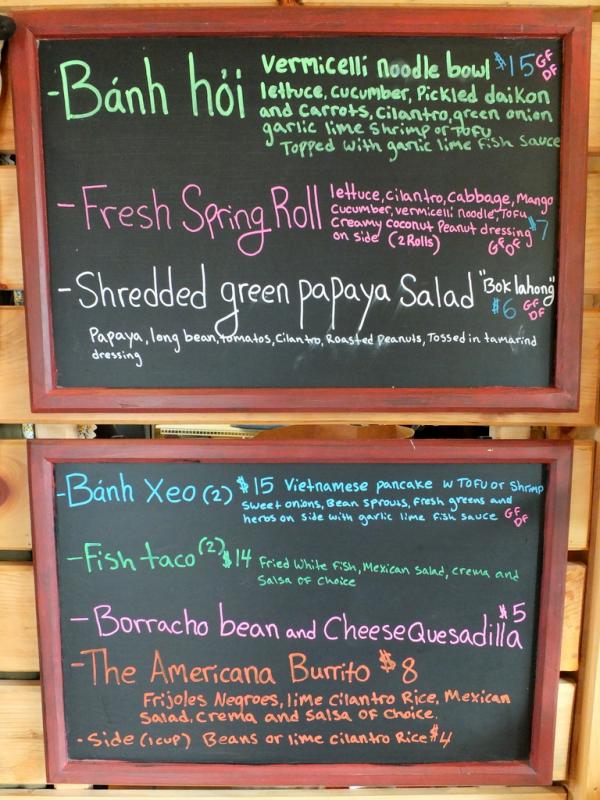 -Bánh hỏi vermicelli noodle bowl $15 GF DF
lettuce, cucumber, Pickled daikon
and carrots, cilantro, green onion
garlic lime shrimp or TOFU
Topped with garlic lime Fish Sauce
-Fresh Spring Roll lettuce, cilantro, cabbage, Mango
cucumber, vermicelli noodle, TOFU
creamy coconut Peanut dressing $7
on side (2 Rolls) GF DF
-Shredded green papaya Salad "Bok lahong"
$6 GF DF
Papaya, long bean, tomatos, Cilantro, Roasted Peanuts, Tossed in tamarind
dressing
-Bánh Xeo (2) $15 Vietnamese pancake w TOFU or Shrimp
sweet onions, Bean sprouts, Fresh greens and
herbs on side with garlic lime fish sauce GF DF
-Fish taco (2) $14 Fried white fish, Mexican salad, crema and
Salsa of choice
-Borracho bean and Cheese Quesadilla $5
-The Americana Burrito $8
Frijoles Negroes, lime cilantro Rice, Mexican
Salad, Crema and Salsa of Choice.
-Side (1cup) Beans or lime cilantro Rice $4